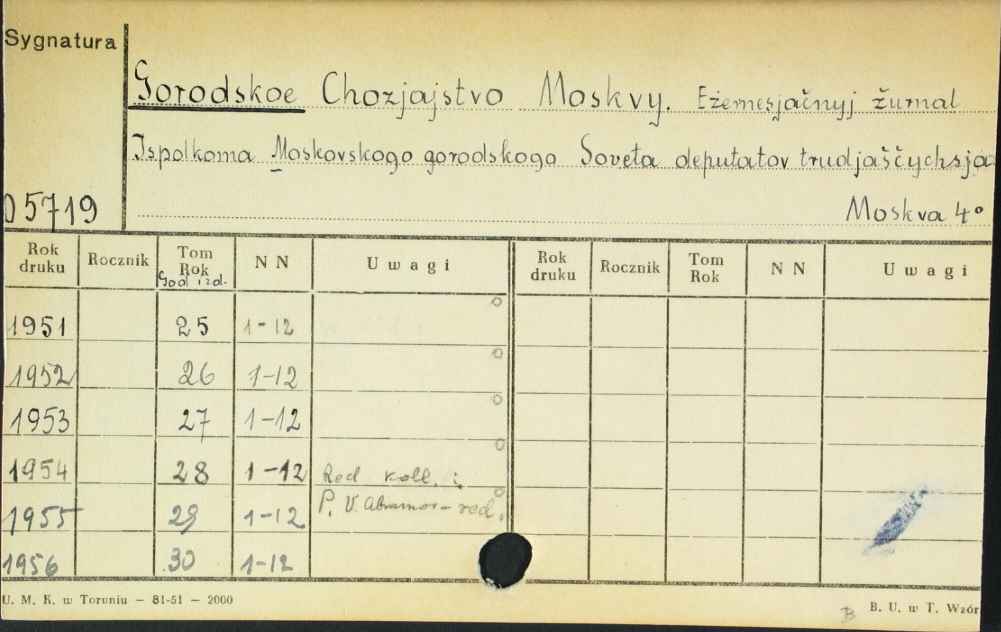 Sygnatura
Gorodskoe Chozjajstvo Moskvy. Eżemesjačnyj žurnal
Ispolkoma Moskovskogo gorodskogo Soveta deputatov trudjaščychsja
05719
Moskva 4°
Rok druku Rocznik Tom Rok NN Uwagi Rok druku Rocznik Tom Rok NN Uwagi
God izd.
1951 25 1-12
1952 26 1-12
1953 27 1-12
1954 28 1-12 Red koll. i
1955 29 1-12 P. V. Abramov - red.
1956 30 1-12
U. M. K. w Toruniu - 81-51 - 2000
B B. U. w T. Wzór